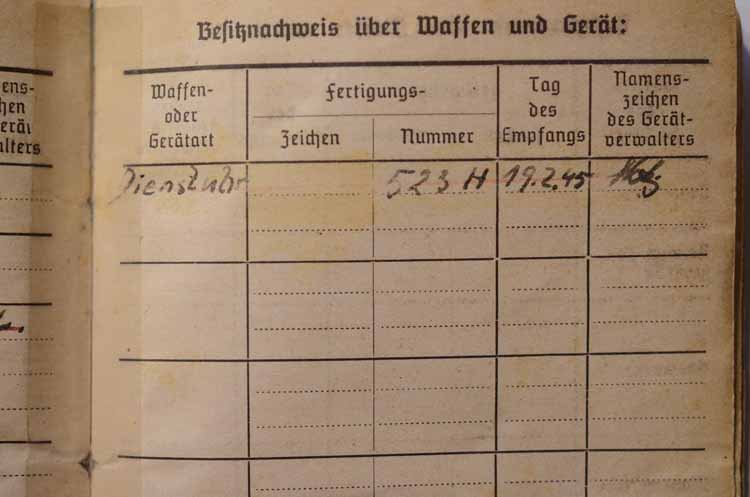 Besitznachweis über Waffen und Gerät:
Waffen-
oder
Gerätart
Fertigungs-
Zeichen
Nummer
Tag
des
Empfangs
Namens-
zeichen
des Gerät-
verwalters
Dienstuhr 523 H 19.2.45
ens-
hen
erät
alters